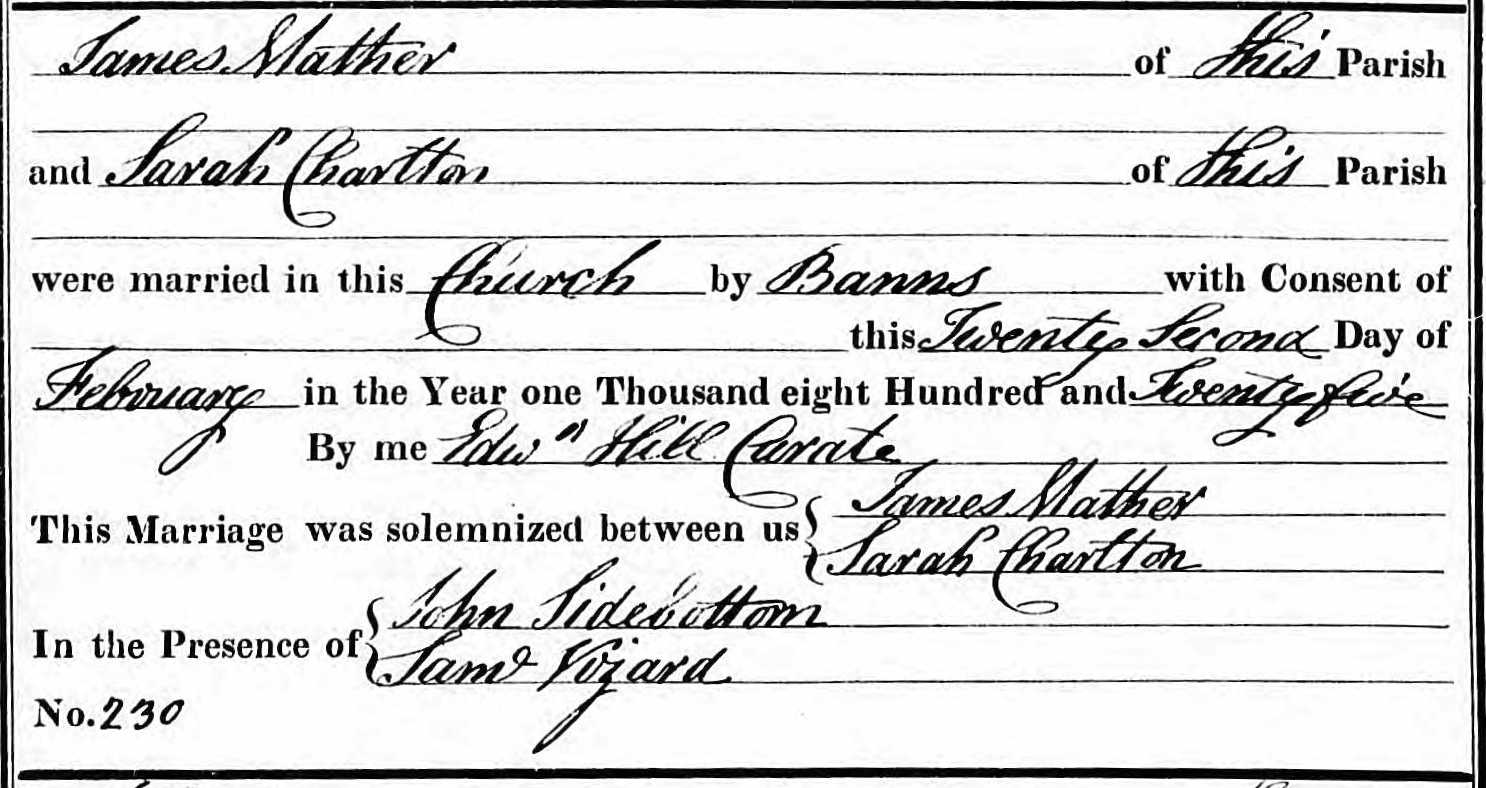 James Mather of this Parish
and Sarah Charlton of this Parish
were married in this Church by Banns with Consent of
this Twenty Second Day of
February in the Year one Thousand eight Hundred and Twenty five
By me Edwd Hill Curate
This Marriage was solemnized between us { James Mather
Sarah Charlton
In the Presence of { John Sidebottom
Saml Vozard
No. 230